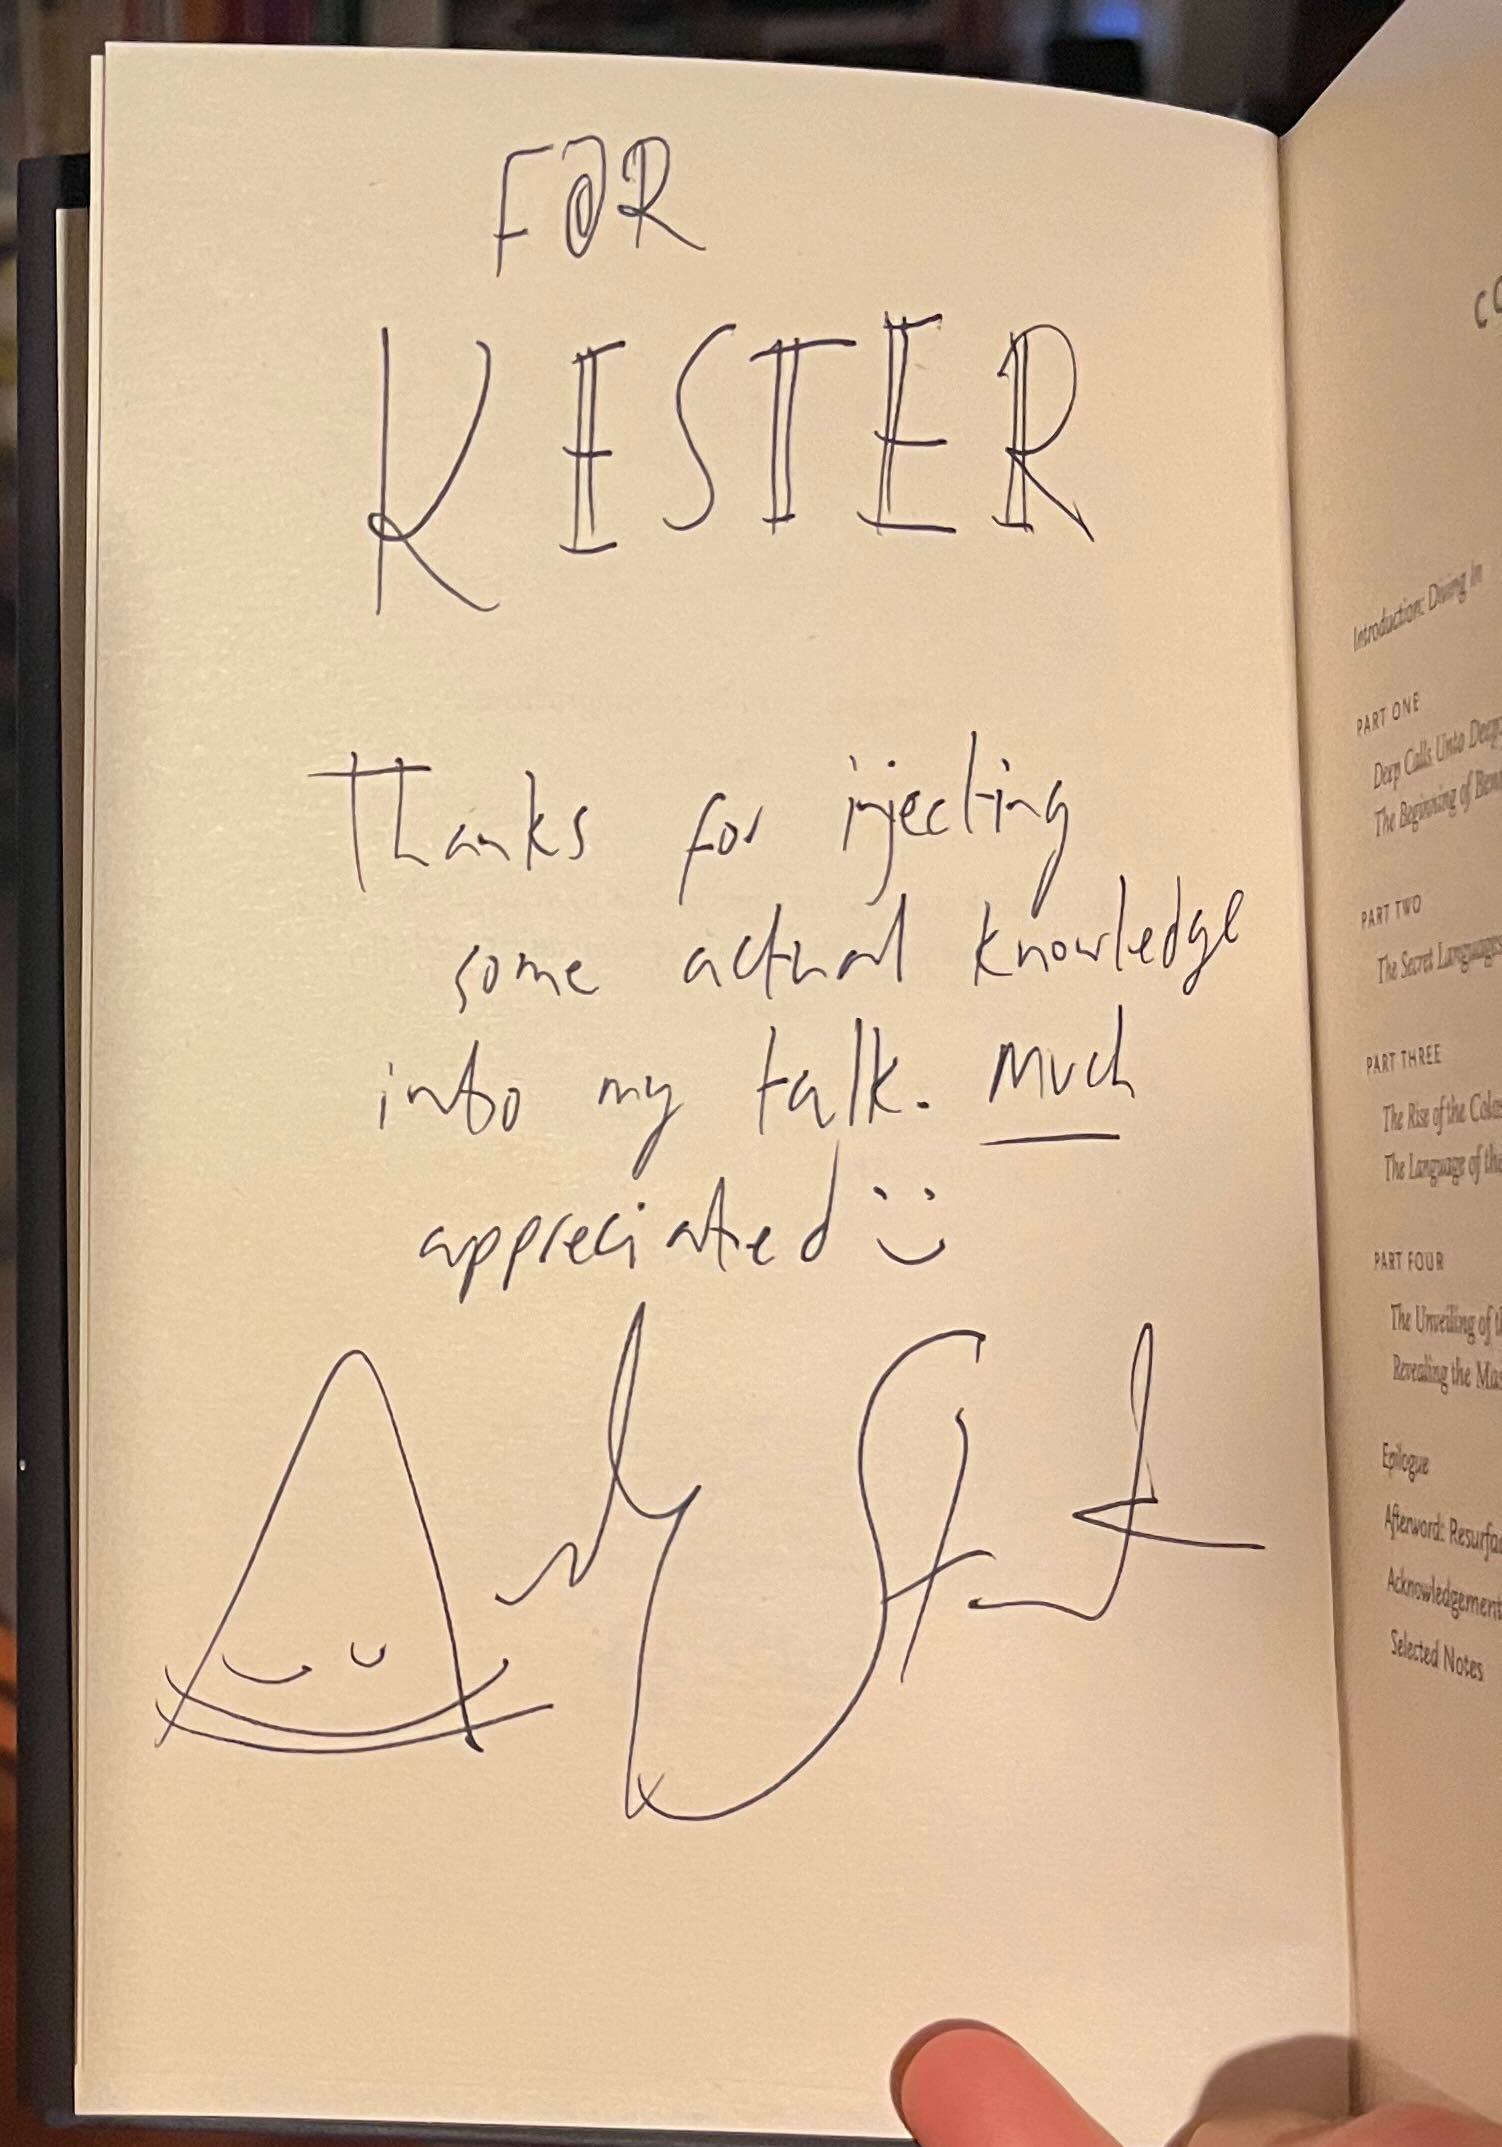 FOR
KESTER
Thanks for injecting
some actual knowledge
into my talk. Much
appreciated :)
Andy
Introduction: Diving In
PART ONE
Deep Calls Unto Deep:
The Beginning of
PART TWO
The Secret Languages
PART THREE
The Rise of the
The Language of the
PART FOUR
The Unveiling of
Revealing the
Epilogue
Afterword:
Acknowledgement
Selected Notes